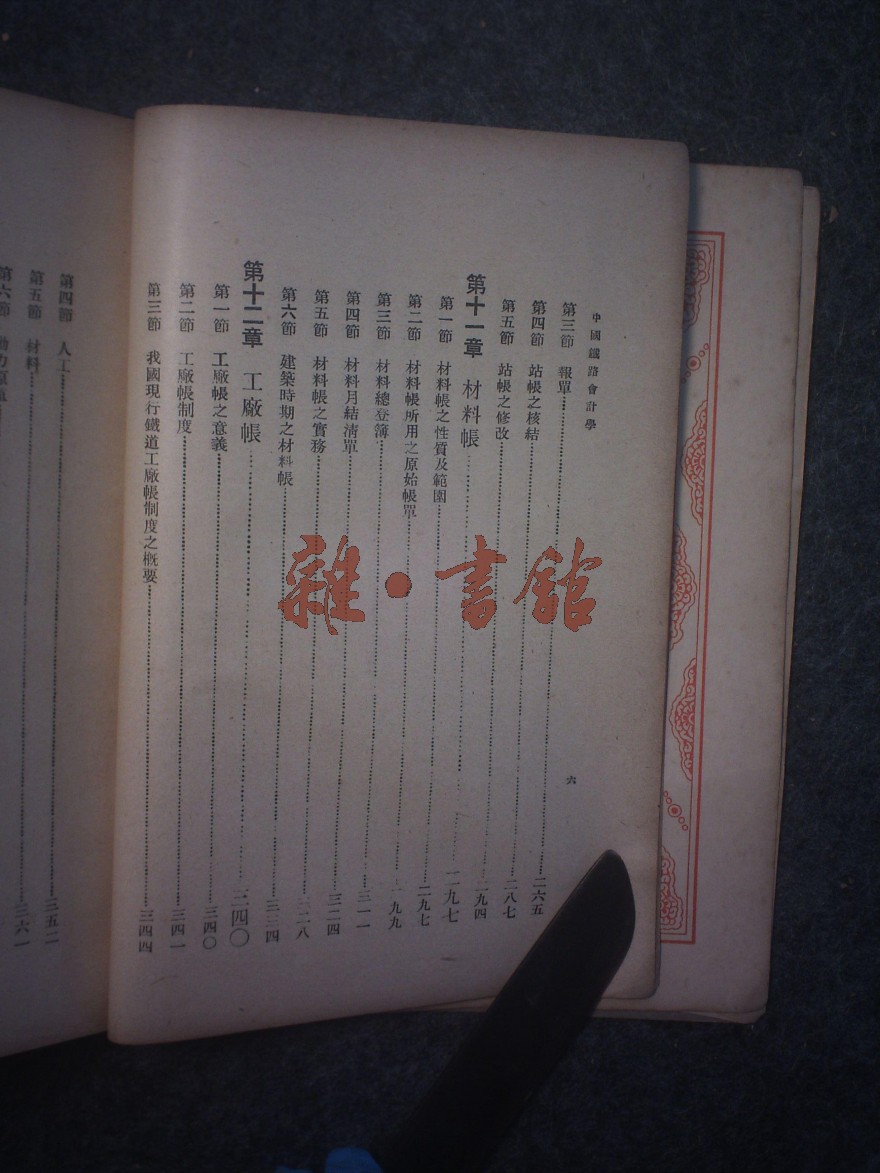 中國鐵路會計學
六
第三節 報單 二六五
第四節 站帳之核結 二八七
第五節 站帳之修改 二九四
第十一章 材料帳 二九七
第一節 材料帳之性質及範圍 二九七
第二節 材料帳所用之原始帳單 九九
第三節 材料總登簿 三一一
第四節 材料月結清單 三二四
第五節 材料帳之實務 三二八
第六節 建築時期之材料帳 三三四
第十二章 工廠帳 三四〇
第一節 工廠帳之意義 三四〇
第二節 工廠帳制度 三四一
第三節 我國現行鐵道工廠帳制度之概要 三四四
第四節 人工 三五二
第五節 材料 三六一
第六節
雜•書館